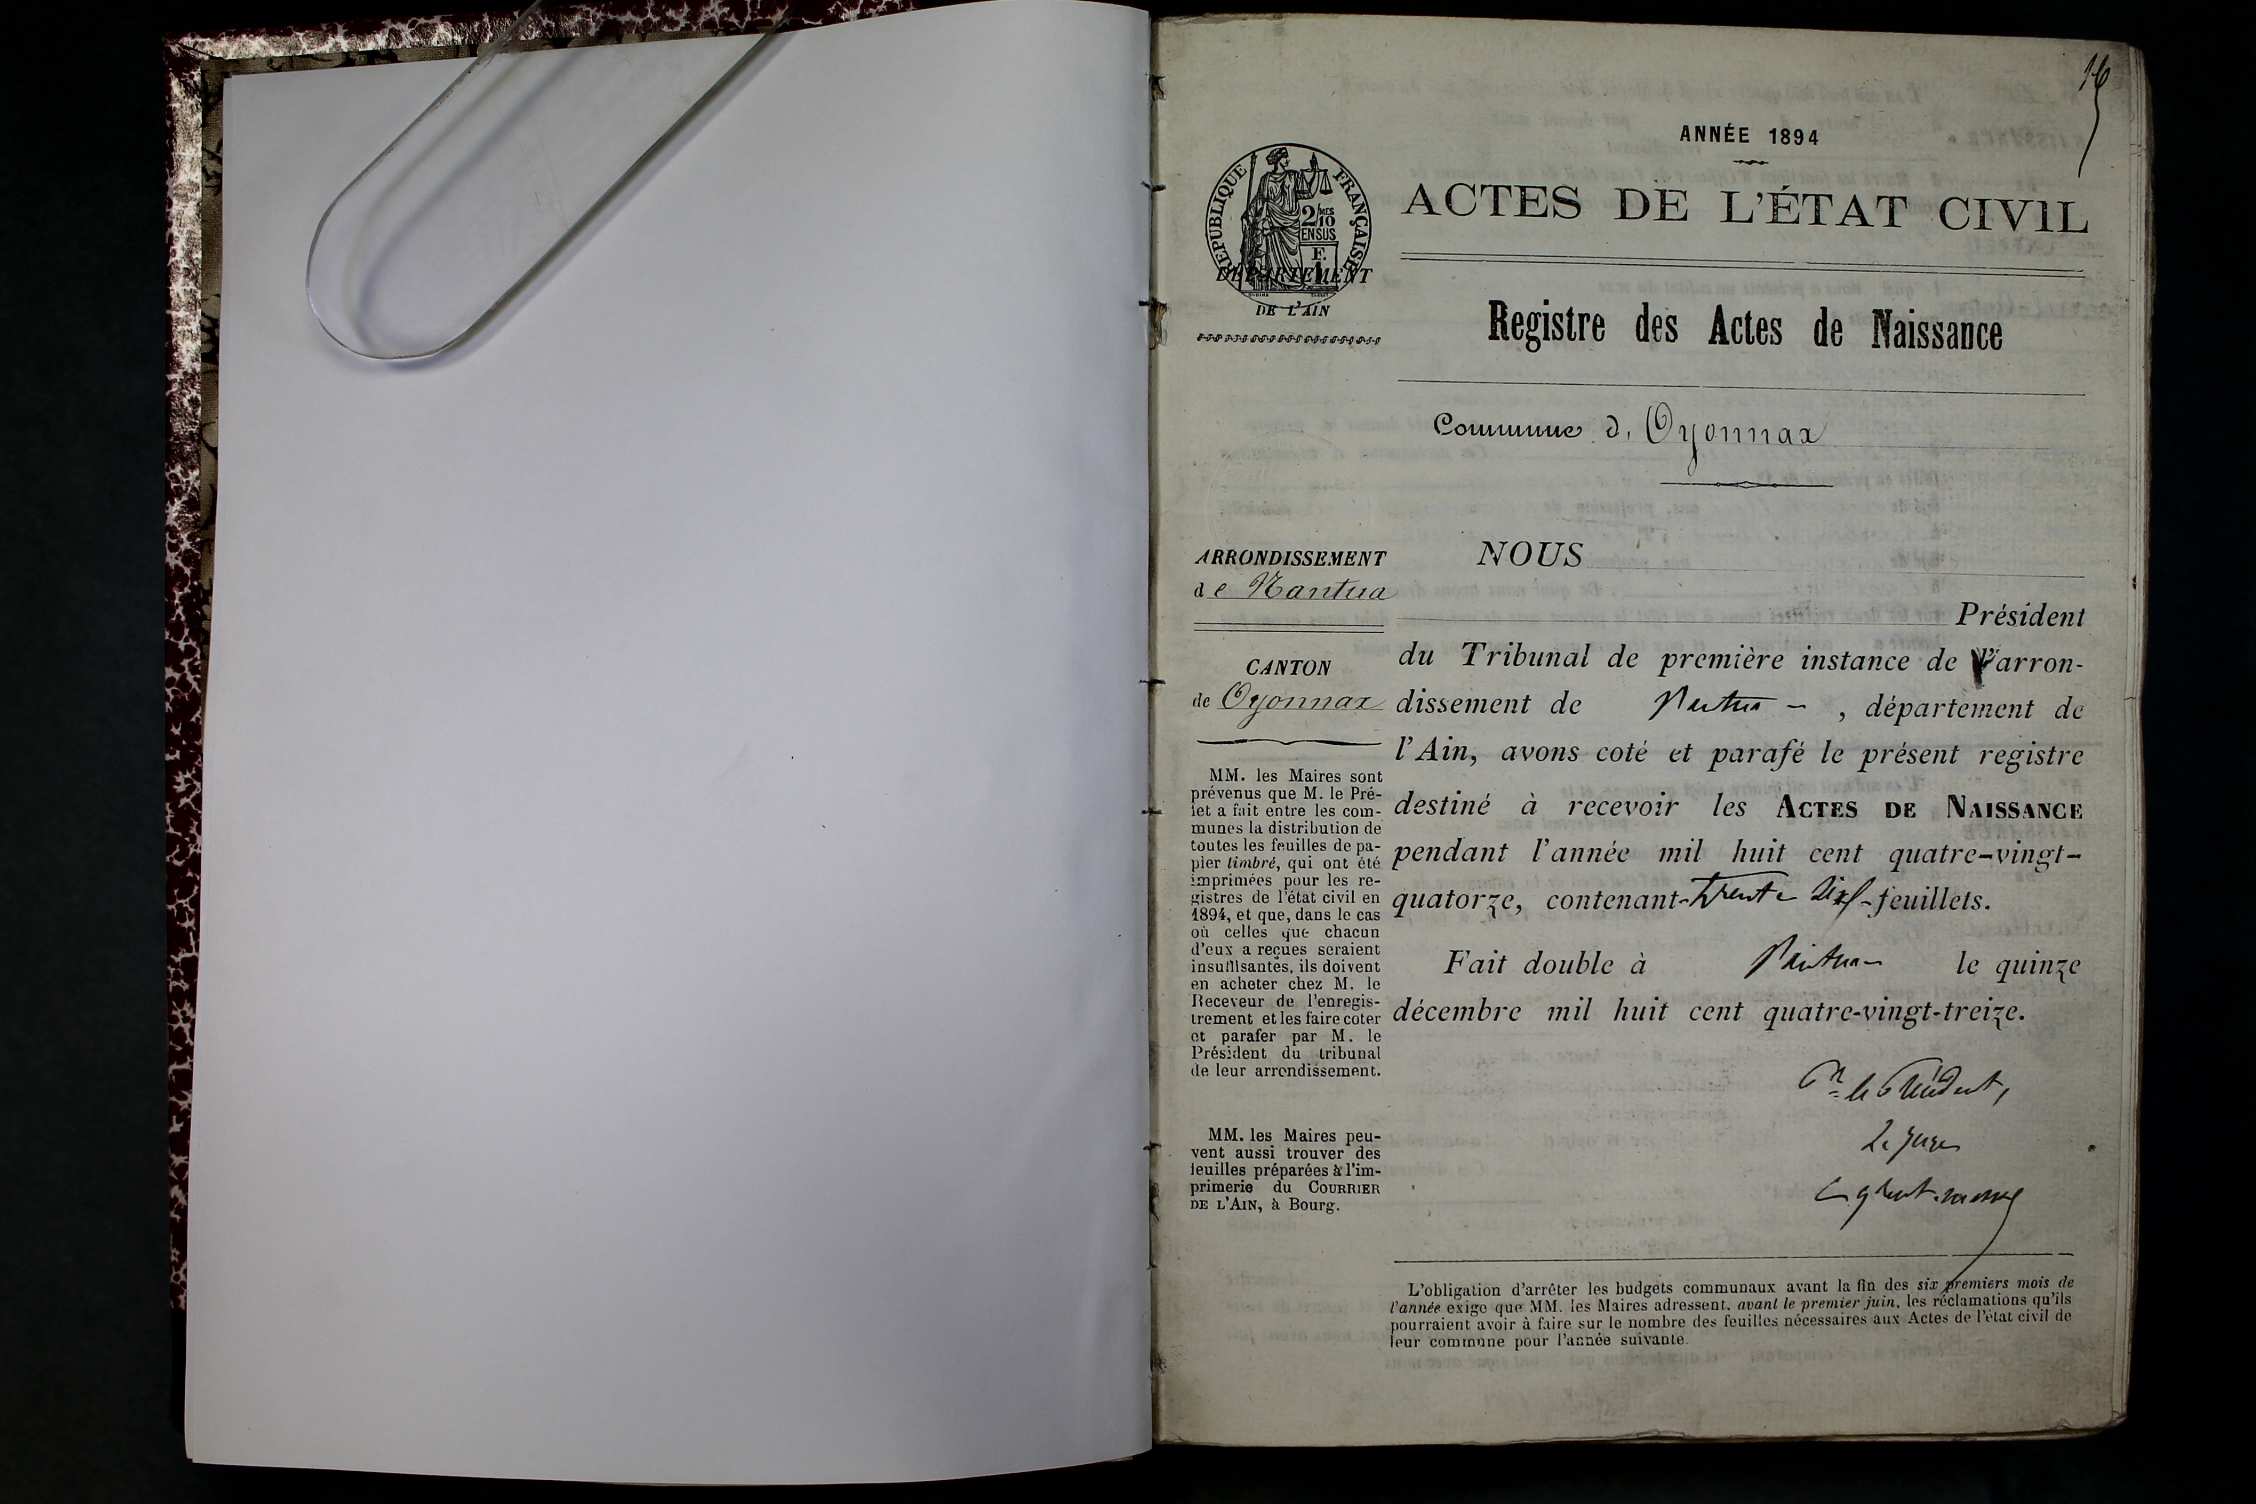 ANNÉE 1894
ACTES DE L'ÉTAT CIVIL
RÉPUBLIQUE FRANÇAISE
2/10 MES
EN SUS
F.
1
DÉPARTEMENT
DE L'AIN
Registre des Actes de Naissance
Commune d'Oyonnax
ARRONDISSEMENT
de Nantua
CANTON
de Oyonnax
MM. les Maires sont
prévenus que M. le Pré-
fet a fait entre les com-
munes la distribution de
toutes les feuilles de pa-
pier timbré, qui ont été
imprimées pour les re-
gistres de l'état civil en
1894, et que, dans le cas
où celles que chacun
d'eux a reçues seraient
insuffisantes, ils doivent
en acheter chez M. le
Receveur de l'enregis-
trement et les faire coter
et parafer par M. le
Président du tribunal
de leur arrondissement.
MM. les Maires peu-
vent aussi trouver des
feuilles préparées à l'im-
primerie du COURRIER
DE L'AIN, à Bourg.
NOUS
Président
du Tribunal de première instance de l'arron-
dissement de Nantua - , département de
l'Ain, avons coté et parafé le présent registre
destiné à recevoir les ACTES DE NAISSANCE
pendant l'année mil huit cent quatre-vingt-
quatorze, contenant - trente - feuillets.
Fait double à Nantua le quinze
décembre mil huit cent quatre-vingt-treize.
Pr le Président,
Le Juge
L'obligation d'arrêter les budgets communaux avant la fin des six premiers mois de
l'année exige que MM. les Maires adressent, avant le premier juin, les réclamations qu'ils
pourraient avoir à faire sur le nombre des feuilles nécessaires aux Actes de l'état civil de
leur commune pour l'année suivante.